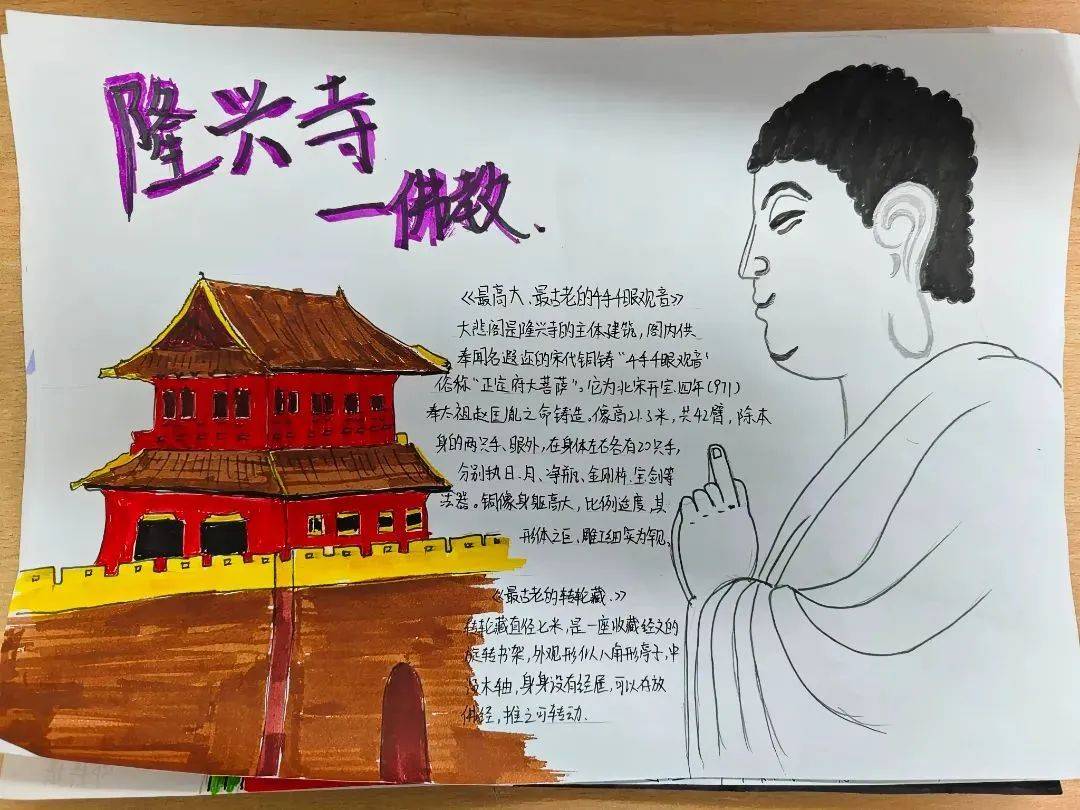 隆兴寺
一佛教、
《最高大、最古老的千手千眼观音》
大悲阁是隆兴寺的主体建筑，阁内供
奉闻名遐迩的宋代铜铸“千手千眼观音”
俗称“正定府大菩萨”。它为北宋开宝四年(971)
奉太祖赵匡胤之命铸造。像高21.3米，共42臂，除本
身的两只手、眼外，在身体左右各有20只手，
分别执日、月、净瓶、金刚杵、宝剑等
法器。铜像身躯高大，比例适度，其
形体之巨、雕工细实为罕见、
《最古老的转轮藏、》
转轮藏直径七米，是一座收藏经文的
旋转书架，外观形似八角形亭子，中
木轴，身身没有经屉，可以存放
佛经，推之可转动.